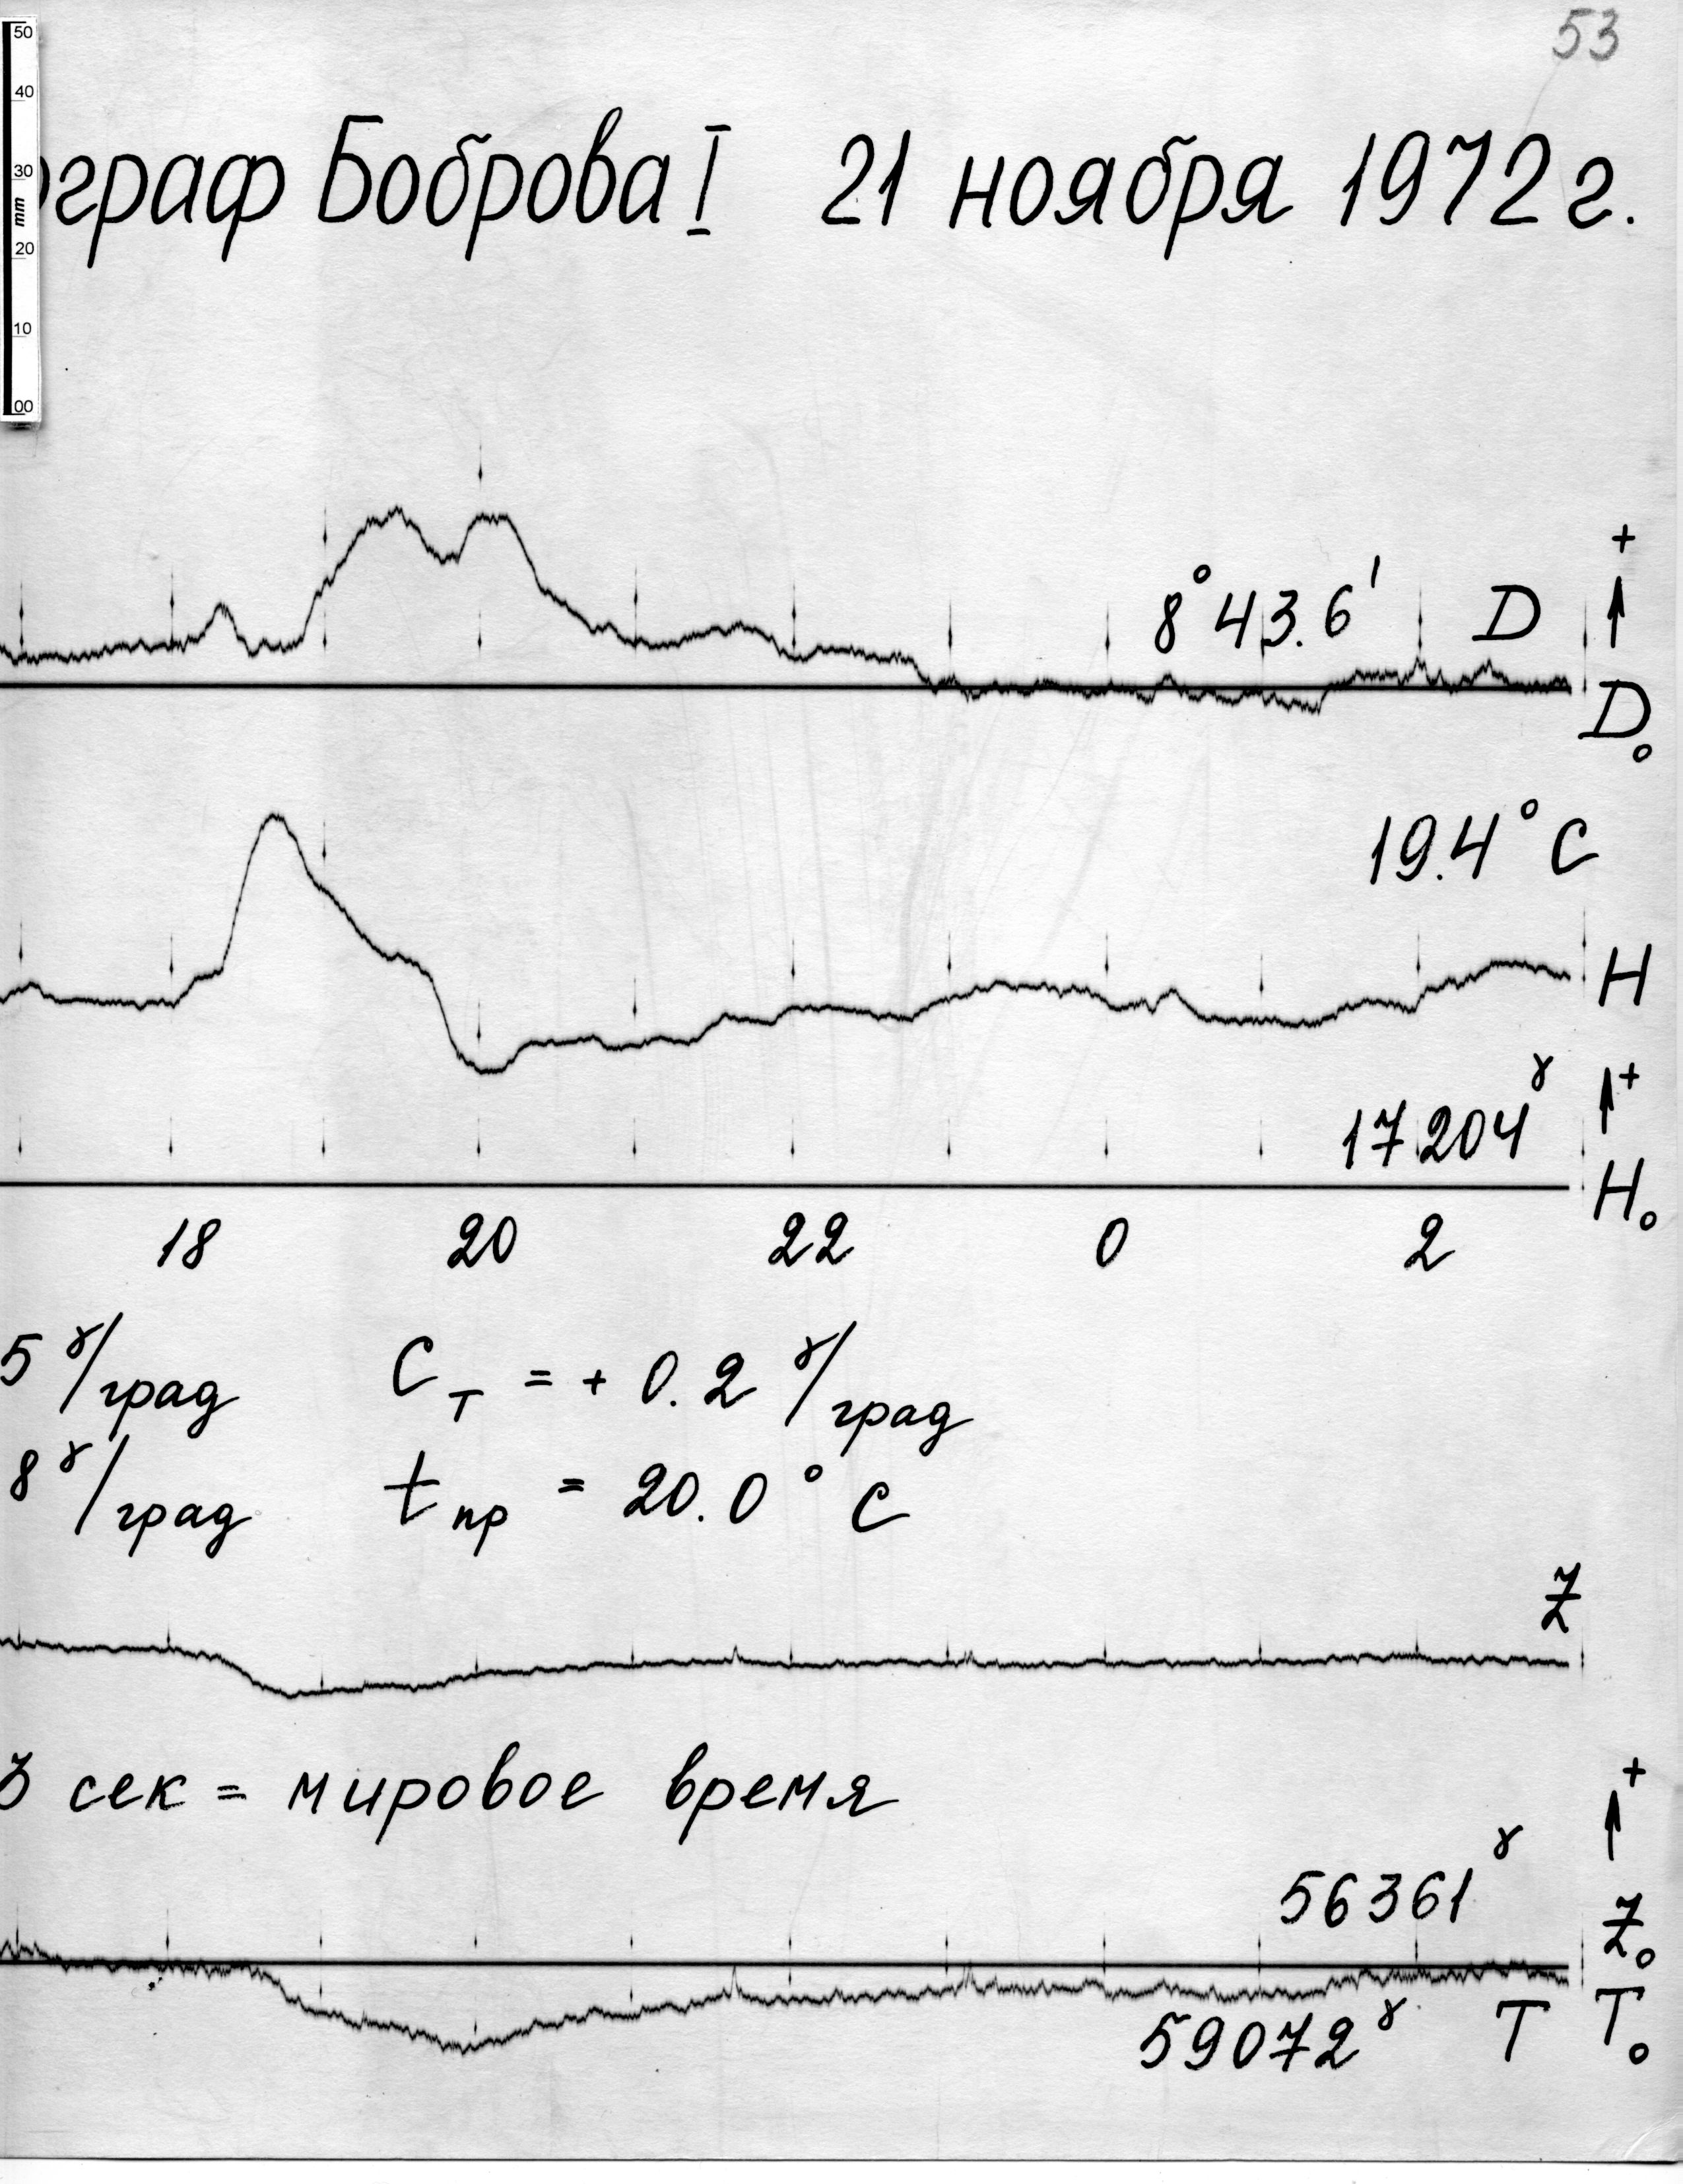 53
50
40
30
mm
20
10
00
ограф Боброва I 21 ноября 1972 г.
+
8° 43.6' D
D₀
19.4° C
H
+
17204 γ
H₀
18 20 22 0 2
5 γ/град C_T = + 0.2 γ/град
8 γ/град t_пр = 20.0° C
Z
3 сек = мировое время
+
56361 γ
Z₀
59072 γ T T₀